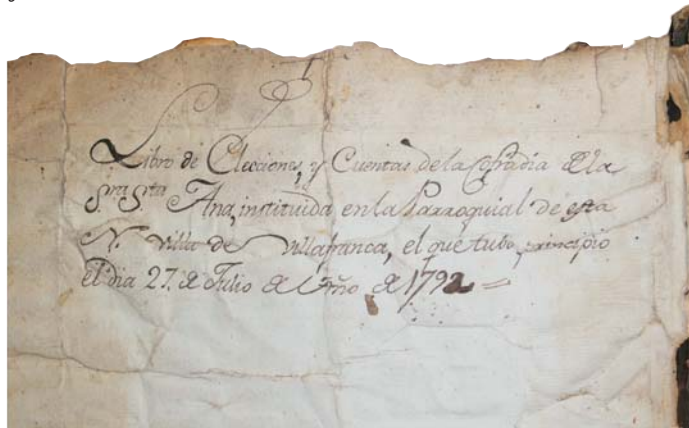 Libro de Elecciones, y Cuentas de la Cofradia de la
Sra. Sta. Ana, instituida en la Parroquial de esta
N. Villa de Villafranca, el que tubo principio
el dia 27. de Julio de Año de 1792 =